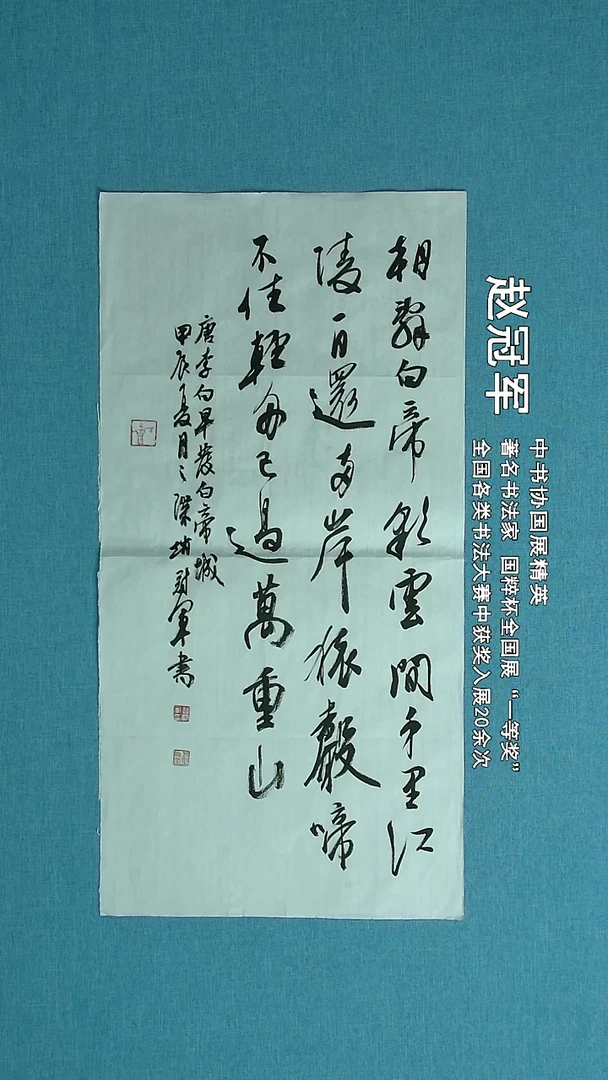 赵冠军
中书协国展精英
著名书法家 国粹杯全国展 “一等奖”
全国各类书法大赛中获奖入展20余次
朝辭白帝彩雲間千里江
陵一日還兩岸猿聲啼
不住輕舟已過萬重山
唐李白早發白帝城
甲辰夏月之深圳冠軍書